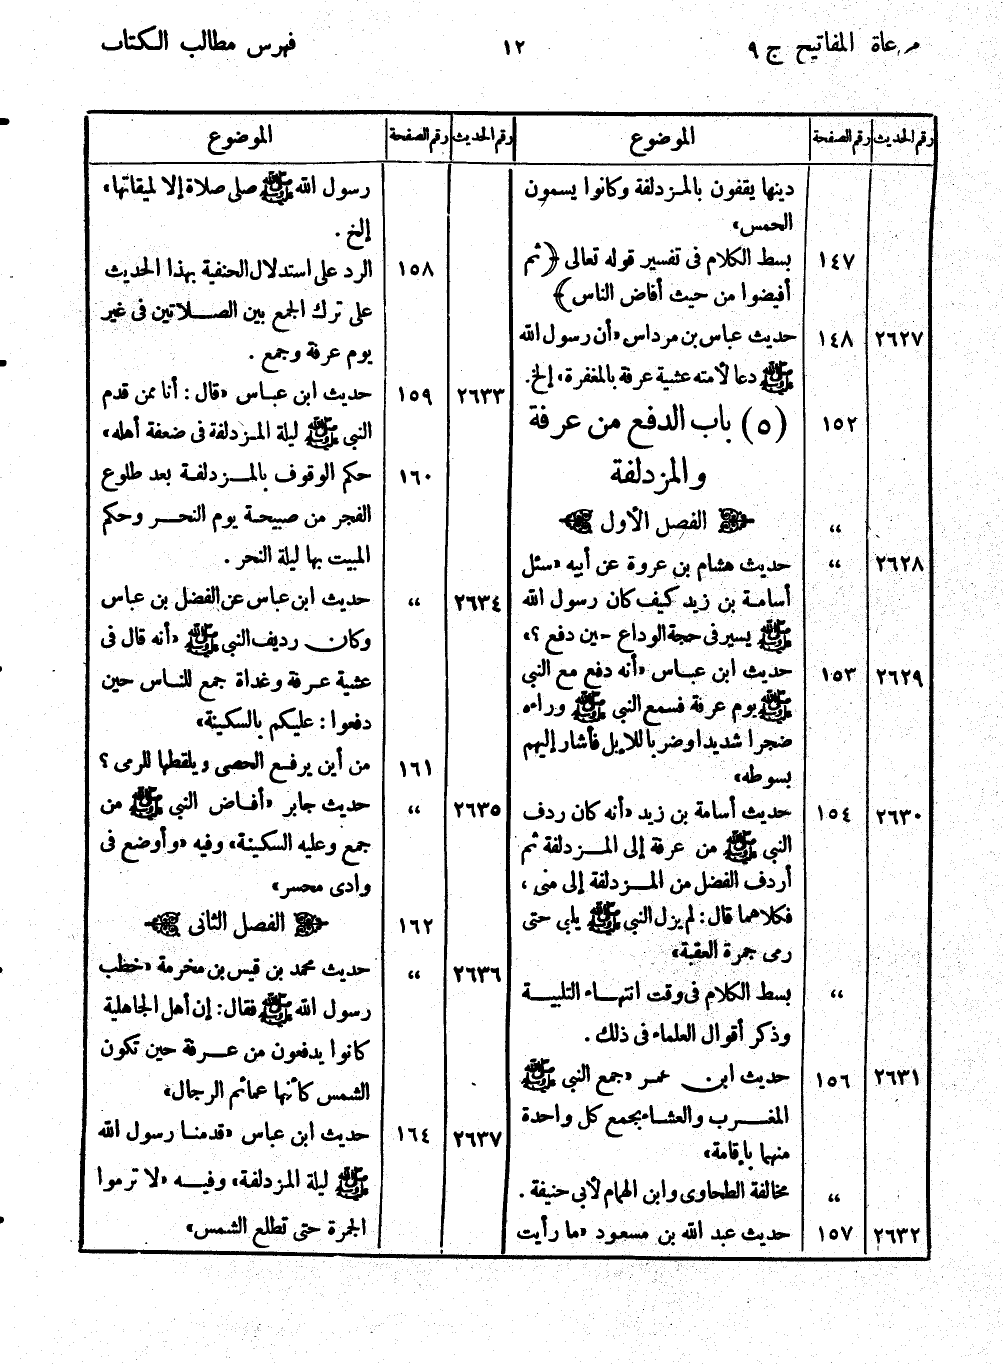 مرعاة المفاتيح ج ٩
١٢
فهرس مطالب الكتاب
رقم الحديث رقم الصفحة الموضوع
دينها يقفون بالمزدلفة وكانوا يسمون
الحمس»
١٤٧ بسط الكلام فى تفسير قوله تعالى ﴿ثم
أفيضوا من حيث أفاض الناس﴾
٢٦٢٧ ١٤٨ حديث عباس بن مرداس «أن رسول الله
ﷺ دعا لأمته عشية عرفة بالمغفرة» إلخ.
١٥٢ (٥) باب الدفع من عرفة
والمزدلفة
،، الفصل الأول
٢٦٢٨ ،، حديث هشام بن عروة عن أبيه «سئل
أسامة بن زيد كيف كان رسول الله
ﷺ يسير فى حجة الوداع حين دفع ؟»
٢٦٢٩ ١٥٣ حديث ابن عباس «أنه دفع مع النبى
ﷺ يوم عرفة فسمع النبى ﷺ وراءه
ضجرا شديدا وضربا للإبل فأشار إليهم
بسوطه»
٢٦٣٠ ١٥٤ حديث أسامة بن زيد «أنه كان ردف
النبى ﷺ من عرفة إلى المزدلفة ثم
أردف الفضل من المزدلفة إلى منى،
فكلاهما قال: لم يزل النبى ﷺ يلبى حتى
رمى جمرة العقبة»
،، بسط الكلام فى وقت انتهاء التلبية
وذكر أقوال العلماء فى ذلك .
٢٦٣١ ١٥٦ حديث ابن عمر «جمع النبى ﷺ
المغرب والعشاء بجمع كل واحدة
منهما بإقامة»
،، مخالفة الطحاوى وابن الهمام لأبى حنيفة .
٢٦٣٢ ١٥٧ حديث عبد الله بن مسعود «ما رأيت
رقم الحديث رقم الصفحة الموضوع
رسول الله ﷺ صلى صلاة إلا لميقاتها»
إلخ .
١٥٨ الرد على استدلال الحنفية بهذا الحديث
على ترك الجمع بين الصلاتين فى غير
يوم عرفة وجمع .
٢٦٣٣ ١٥٩ حديث ابن عباس «قال : أنا ممن قدم
النبى ﷺ ليلة المزدلفة فى ضعفة أهله»
١٦٠ حكم الوقوف بالمزدلفة بعد طلوع
الفجر من صبيحة يوم النحر وحكم
المبيت بها ليلة النحر .
٢٦٣٤ ،، حديث ابن عباس عن الفضل بن عباس
وكان رديف النبى ﷺ «أنه قال فى
عشية عرفة وغداة جمع للناس حين
دفعوا : عليكم بالسكينة»
١٦١ من أين يرفع الحصى ويلقطها للرمى ؟
٢٦٣٥ ،، حديث جابر «أفاض النبى ﷺ من
جمع وعليه السكينة» وفيه «وأوضع فى
وادى محسر»
١٦٢ الفصل الثانى
٢٦٣٦ ،، حديث محمد بن قيس بن مخرمة «خطب
رسول الله ﷺ فقال: إن أهل الجاهلية
كانوا يدفعون من عرفة حين تكون
الشمس كأنها عمائم الرجال»
٢٦٣٧ ١٦٤ حديث ابن عباس «قدمنا رسول الله
ﷺ ليلة المزدلفة» وفيه «لا ترموا
الجمرة حتى تطلع الشمس»